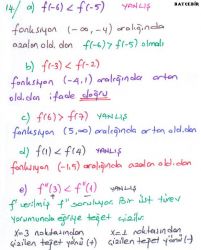 HATSEBİR
14/ a) f(-6) < f(-5) YANLIŞ
fonksiyon (-∞, -4) aralığında
azalan old. dan f(-6) > f(-5) olmalı
b) f(-3) < f(-2)
fonksiyon (-4,1) aralığında artan
old.dan ifade doğru
c) f(6) > f(7) YANLIŞ
fonksiyon (5,∞) aralığında artan old.dan
d) f(1) < f(4) YANLIŞ
fonksiyon (-1,5) aralığında azalan old.dan
e) f''(3) < f''(1) YANLIŞ
f' verilmiş f'' soruluyor Bir üst türev
yorumunda eğriye teğet çizilir
x=3 noktasından x=1 noktasından
çizilen teğet yönü (+) çizilen teğet yönü (-)